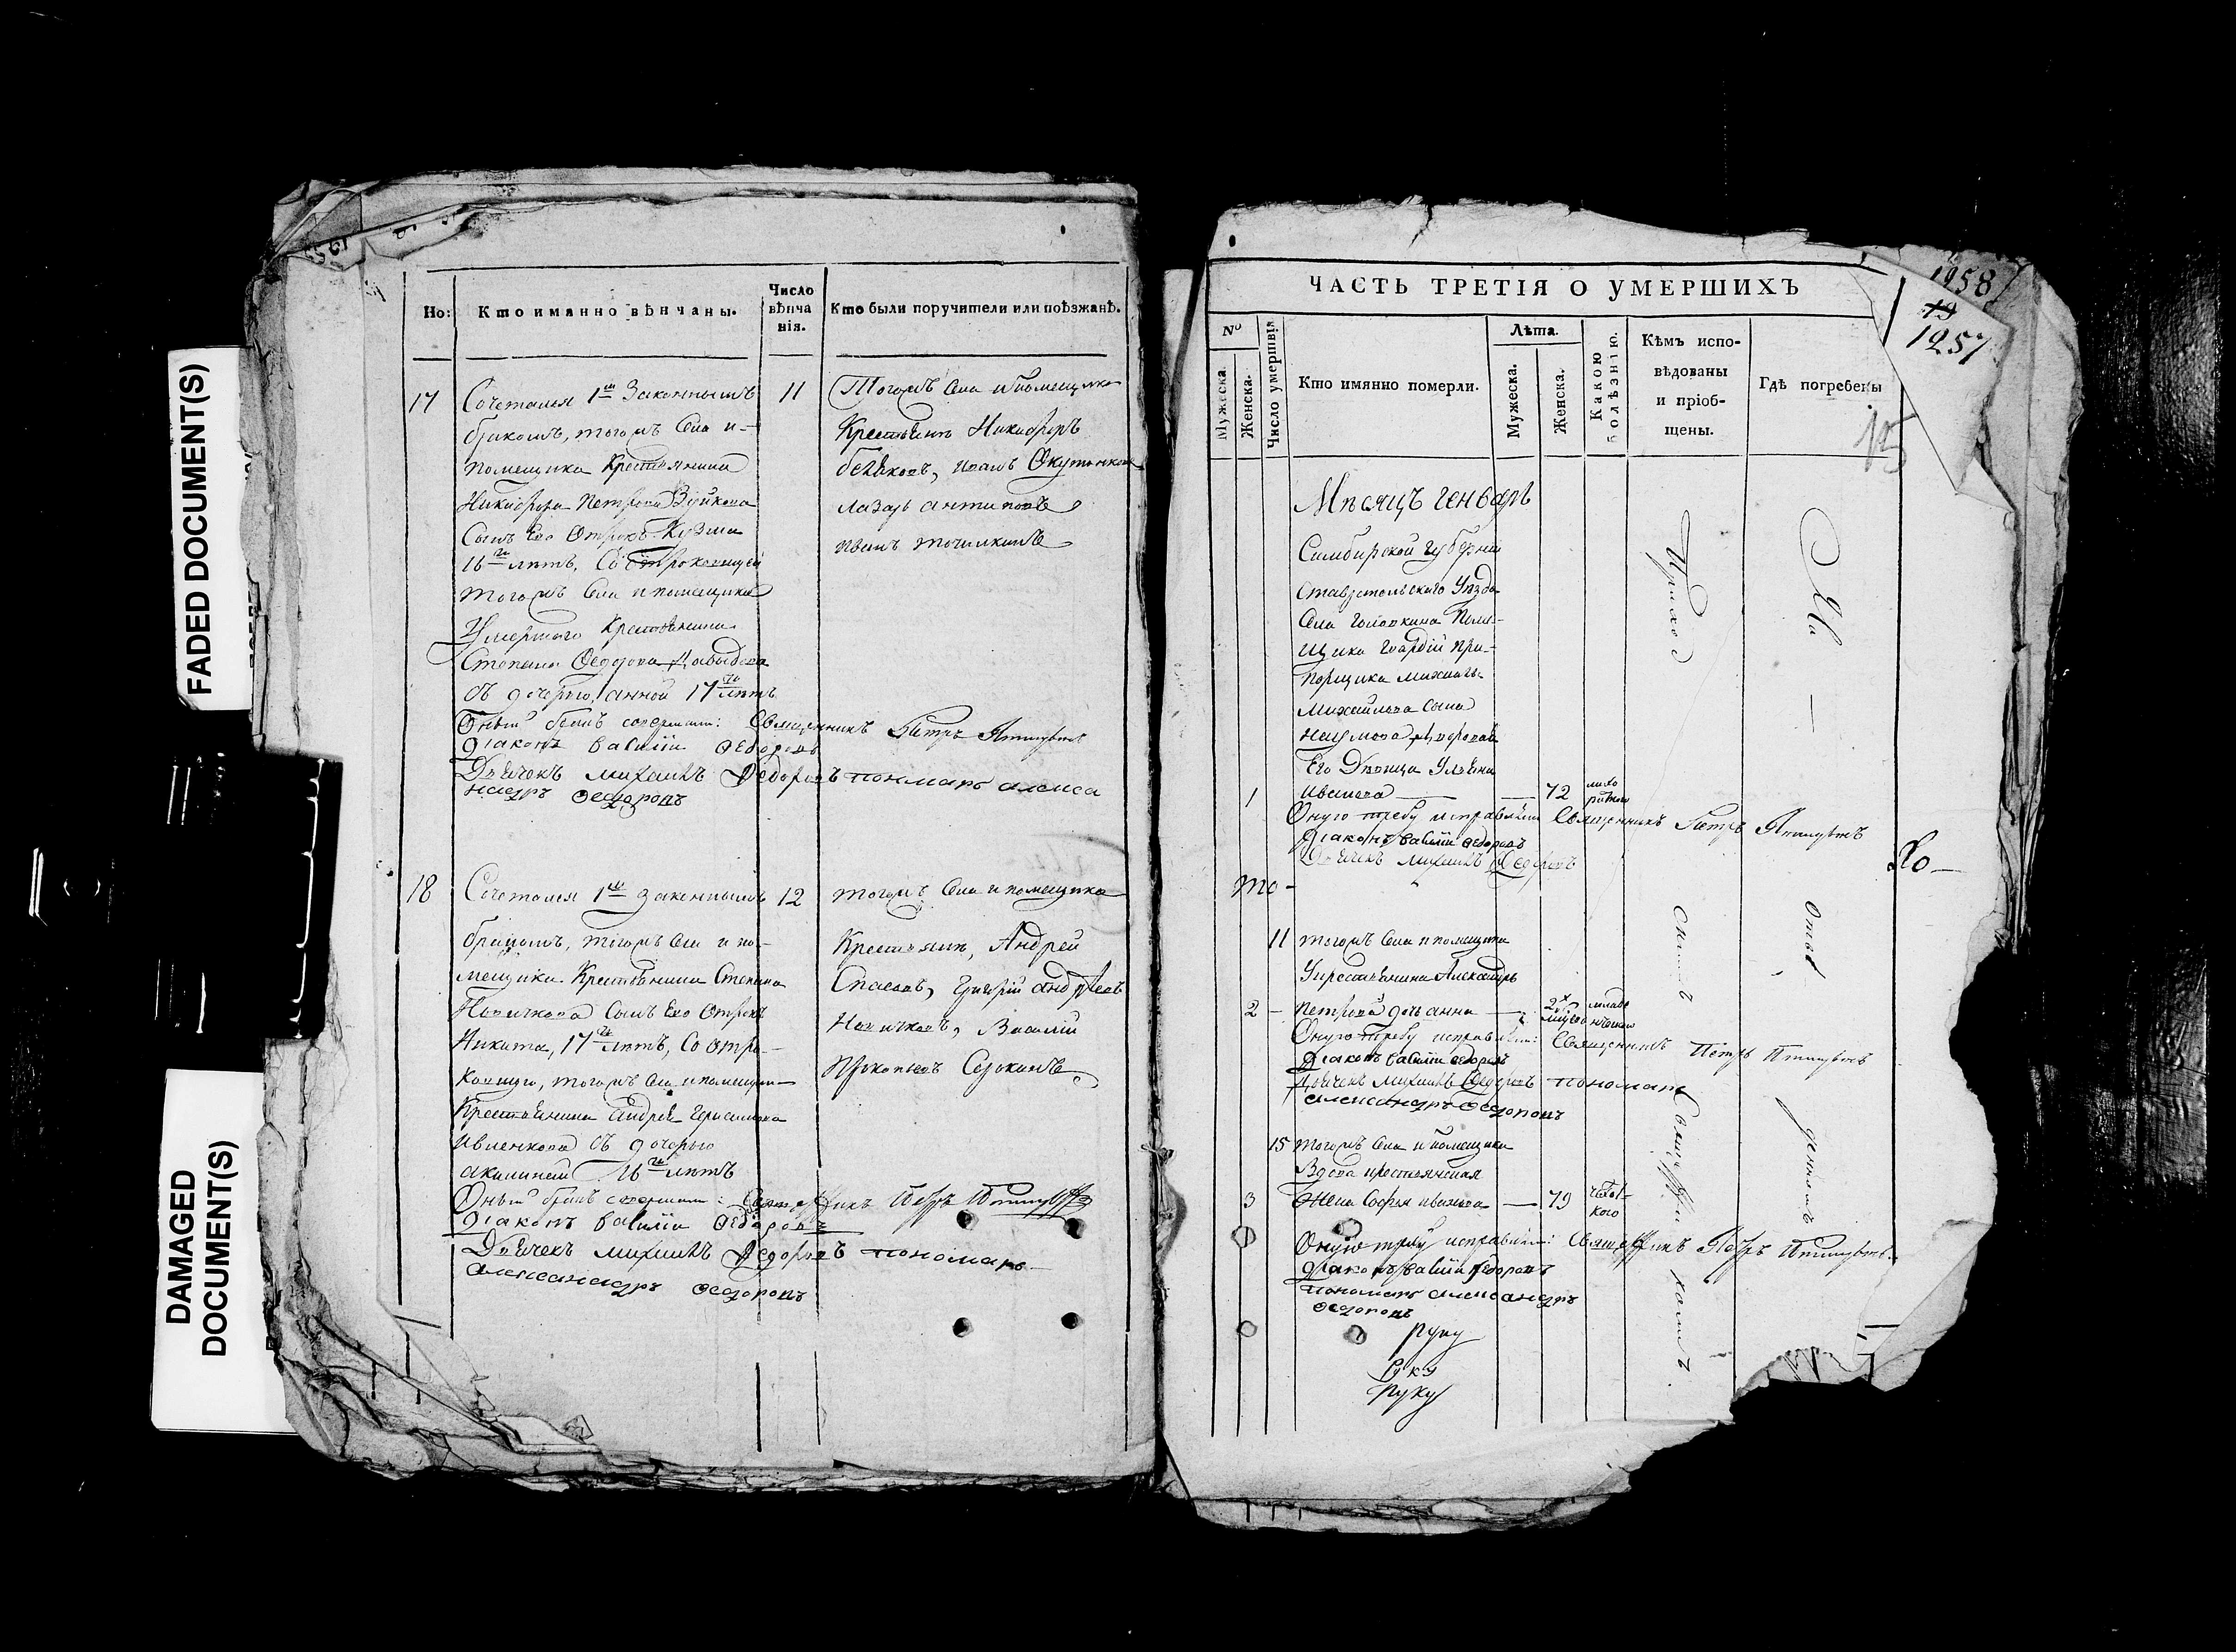 FADED DOCUMENT(S)
DAMAGED
DOCUMENT(S)
Но:
Кто имянно вѣнчаны.
Число
вѣнча
нія.
Кто были поручители или поѣзжанѣ.
17
Сочетался 1м Законнымъ
бракомъ, тогожъ Села и-
помещика Крестьянина
Никифора Петрова
Сынъ Его Отрокъ Кузма
16ти лѣтъ, Со отроковицей
тогожъ Села и помещика
Умершаго Крестьянина
Степана Федорова Давыдова
съ дочерью Анной 17ти лѣтъ
11
Тогожъ Села и помещика
Крестьяне Никифоръ
Иванъ
Лазарь Антиповъ
Иванъ
Оный бракъ совершали: Священникъ Петръ
Діаконъ Василій Федоровъ
Дьячекъ Михаилъ Федоровъ пономарь Алекса
ндръ Федоровъ
18
Сочетался 1м Законнымъ
бракомъ, тогожъ Села и по-
мещика Крестьянина Степана
Новичкова Сынъ Его Отрокъ
Никита, 17ти лѣтъ, Со отро-
ковицею, тогожъ Села и помещика
Крестьянина Андрея Герасимова
съ дочерью
Акилиной 16ти лѣтъ
12
тогожъ Села и помещика
Крестьяне, Андрей
Спасовъ, Григорій Андреевъ
Новичковъ, Василій
Прокопьевъ Сорокинъ
Оный бракъ совершали: Священникъ Петръ
Діаконъ Василій Федоровъ
Дьячекъ Михаилъ Федоровъ пономарь
Александръ Федоровъ
ЧАСТЬ ТРЕТІЯ О УМЕРШИХЪ
1958
1257
15
№
Мужеска.
Женска.
Число умершвія
Кто имянно померли.
Лѣта.
Мужеска.
Женска.
Какою
болѣзнію.
Кѣмъ испо-
вѣдованы
и пріоб-
щены.
Гдѣ погребены
Мѣсяцъ Генварь
Симбирской Губерніи
Ставропольскаго Уѣзда
Села Головкина Поме-
щика Гвардіи пра-
порщика Михаилы
Михайлова сына
Наумова дворовая
Его Дѣвица Ульяна
1
Иванова
72
Приходс
На
Оную требу исправляли Священникъ Петръ
Діаконъ Василій Федоровъ
Дьячекъ Михаилъ Федоровъ
то-
Хо-
11
тогожъ Села и помещика
Крестьянина Александръ
2
Петрова дочь Анна
2х
младе
нческою
скимъ
отве
Оную требу исправляли: Священникъ Петръ
Діаконъ Василій Федоровъ
Дьячекъ Михаилъ Федоровъ пономарь
Александръ Федоровъ
15
тогожъ Села и помещика
Вдова крестьянская
3
Жена Софья Иванова
79
Священни
денномъ
Оную требу исправляли: Священникъ Петръ
Діаконъ Василій Федоровъ
пономарь Александръ
Федоровъ
комъ.
руку
руку
руку